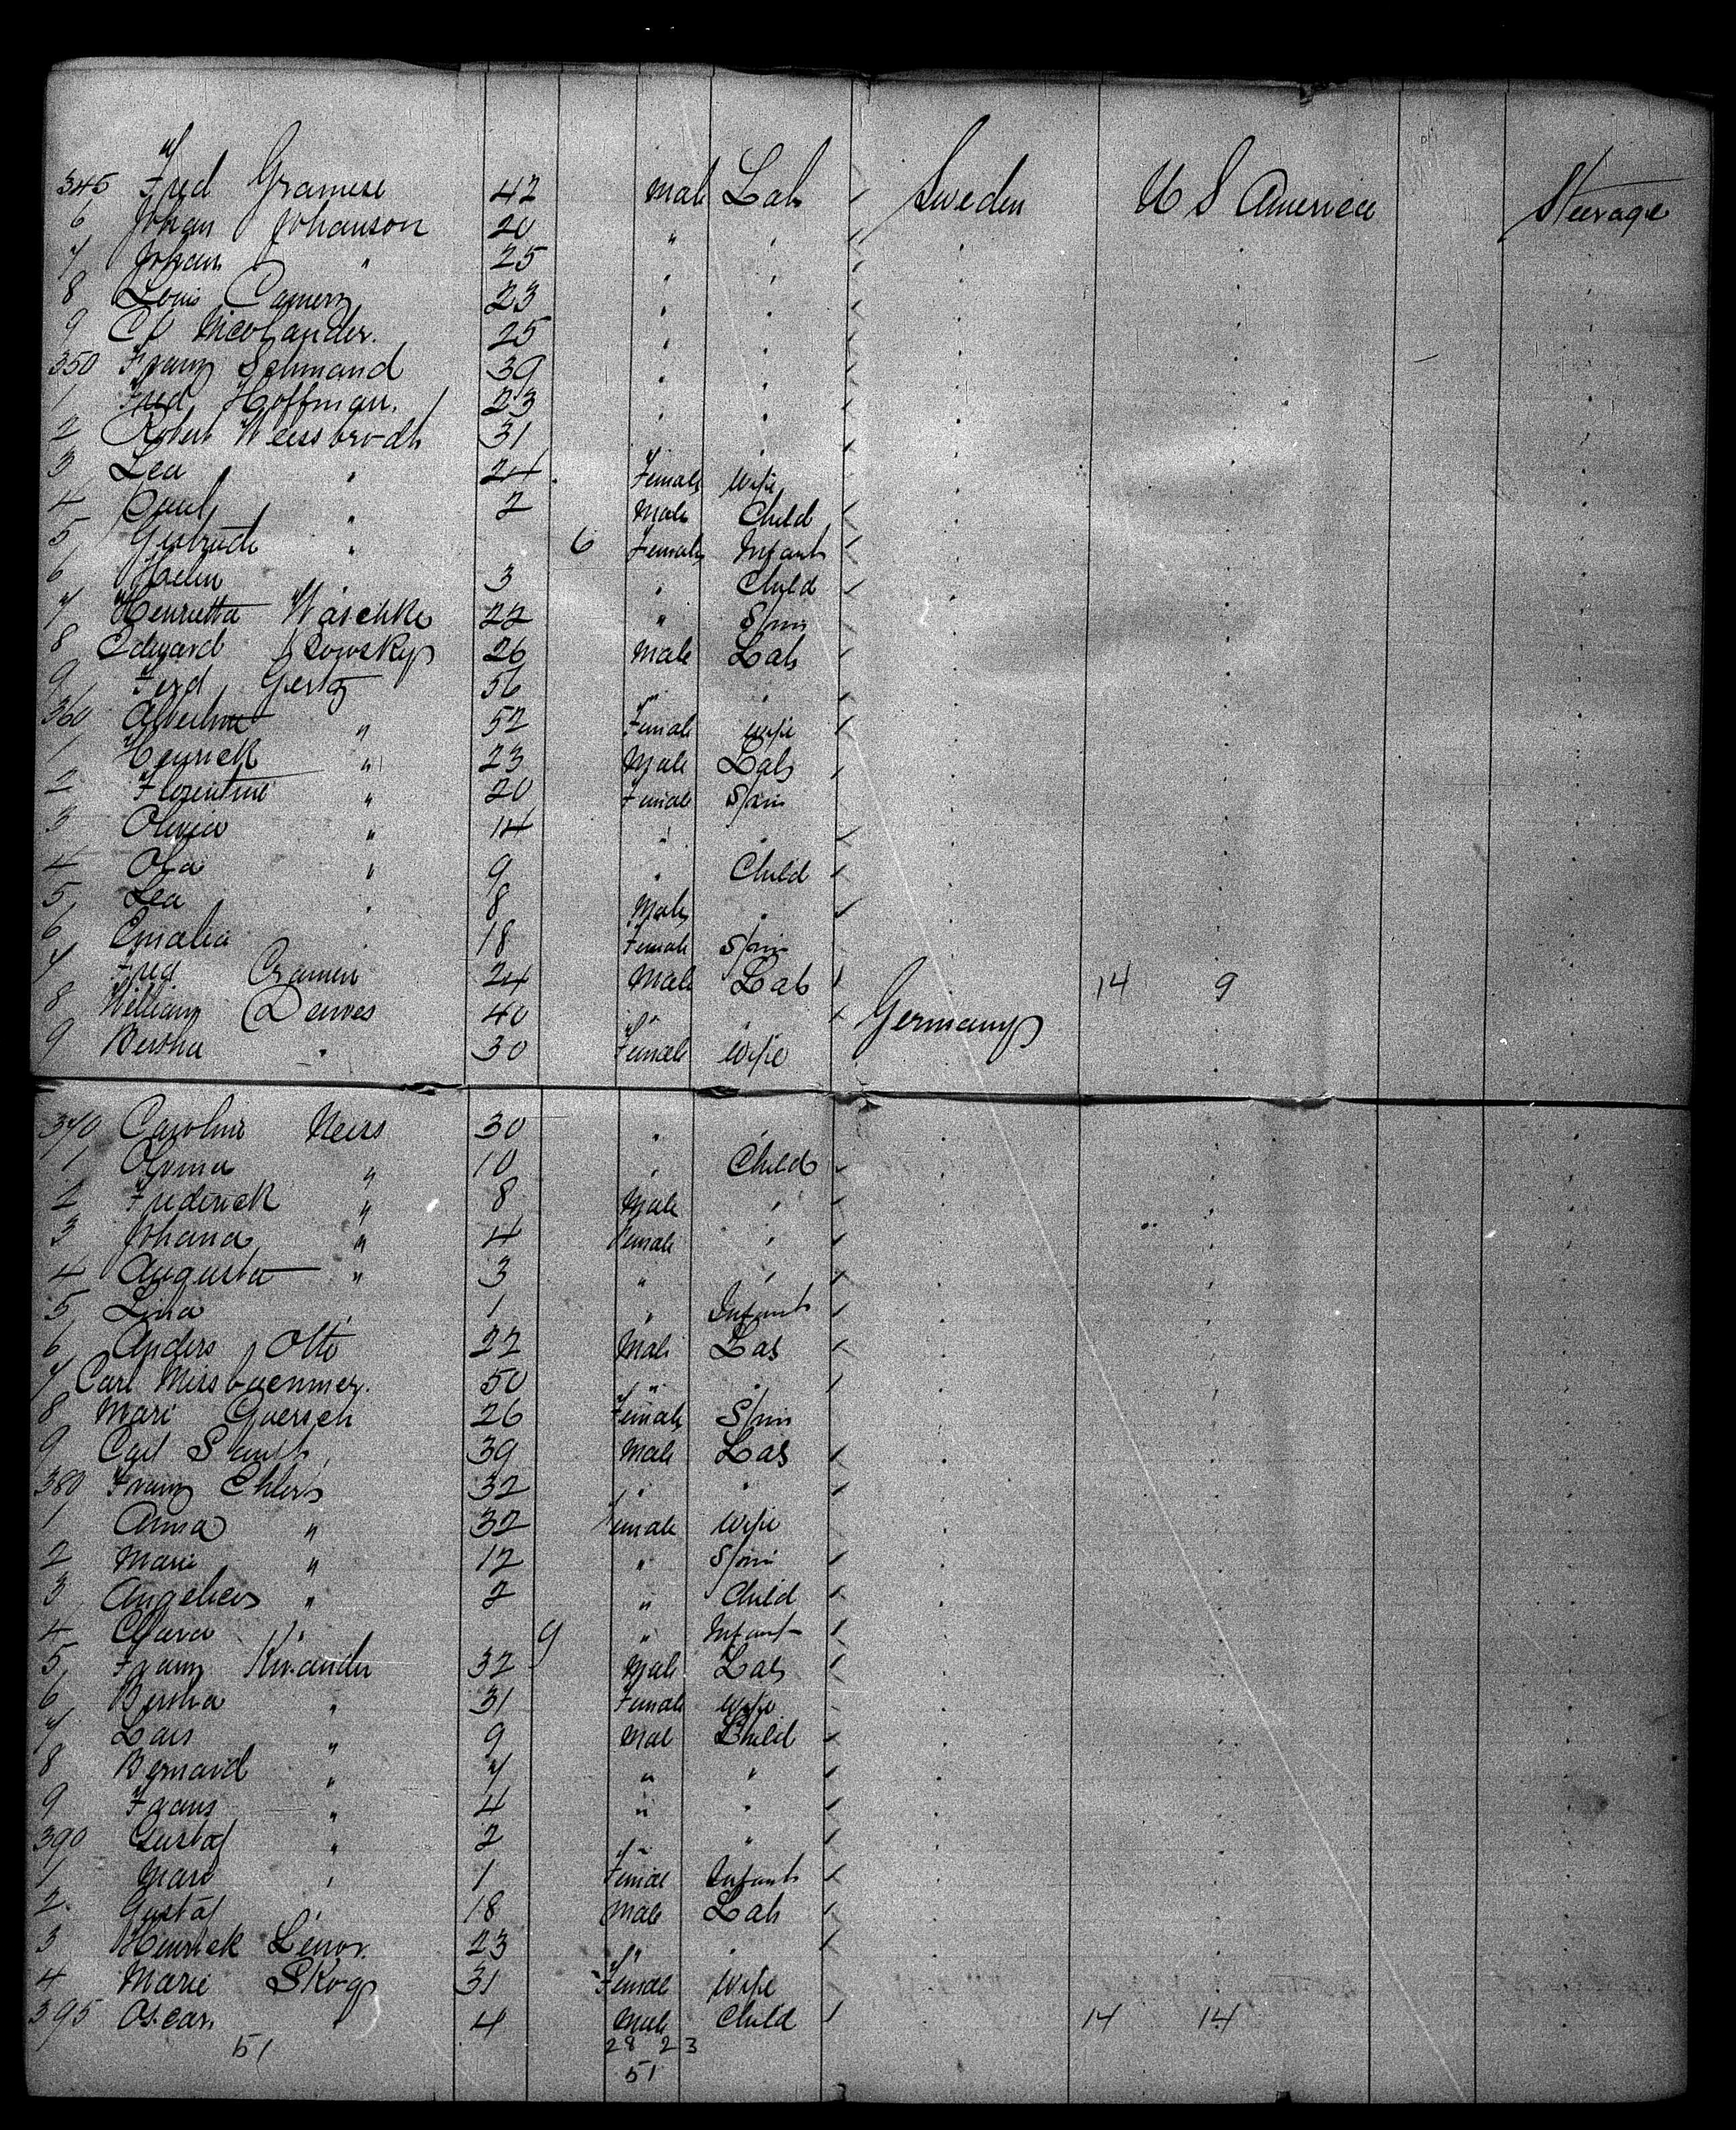 345 Fred Gramese 42 Male Lab Sweden U S America Steerage
6 Johan Johanson 20 " "
7 Johan " 25 " "
8 Louis Camerz 23 " "
9 25 " "
350 Franz Schmand 39 " "
1 Fred Hoffman. 23 " "
2 Robert Weissbrodt 31 "
3 Lea " 24 Female Wife
4 Paul " 2 Male Child
5 Gertrude " 6 Female Infant
6 Helen 3 " Child
7 Henrietta Waschke 22 " Spin
8 Edward 26 Male Lab
9 Ferd Gertz 56 " "
360 Albertine " 52 Female Wife
1 Henrick " 23 Male Lab
2 Florentine " 20 Female Spin
3 Olivia " 14 " "
4 Ola " 9 " Child
5 Lea " 8 Male "
6 Emalia " 18 Female Spin
7 Fred Cramer 24 Male Lab 14 9
8 William Denves 40 " " Germany
9 Bertha " 30 Female Wife
370 Caroline Neers 30 " "
1 " 10 " Child
2 Frederick " 8 Male "
3 Johana " 4 Female "
4 Augusta " 3 " "
5 Lina " 1 " Infant
6 Anders Otto 22 Male Lab
7 Carl 50 " "
8 Mari Guersch 26 Female Spin
9 Carl 39 Male Lab
380 Franz Ehlers 32 " "
1 Anna " 32 Female Wife
2 Marie " 12 " Spin
3 Angelica " 2 " Child
4 Clara " 9 " Infant
5 Franz 32 Male Lab
6 Bertha " 31 Female Wife
7 Lars " 9 Male Child
8 Bernard " 7 " "
9 Frans " 4 " "
390 Gustaf " 2 " "
1 Mari " 1 Female Infant
2. Gustaf " 18 Male Lab
3 Henrick Lenor. 23 " "
4 Marie Skog 31 Female Wife
395 Oscar " 4 Male Child 14 14
51 28 23
51